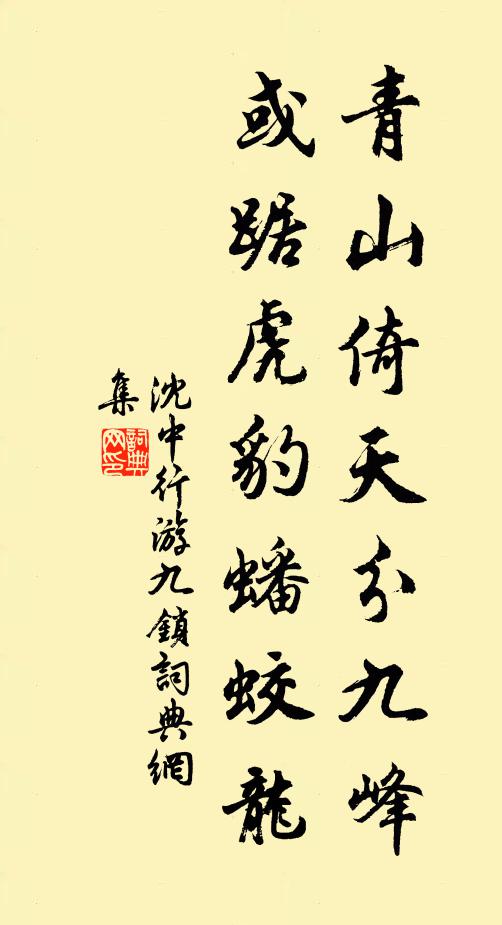 青山倚天分九峰
或踞虎豹蟠蛟龍
沈中行游九鎖詞典網
集
詞典網印